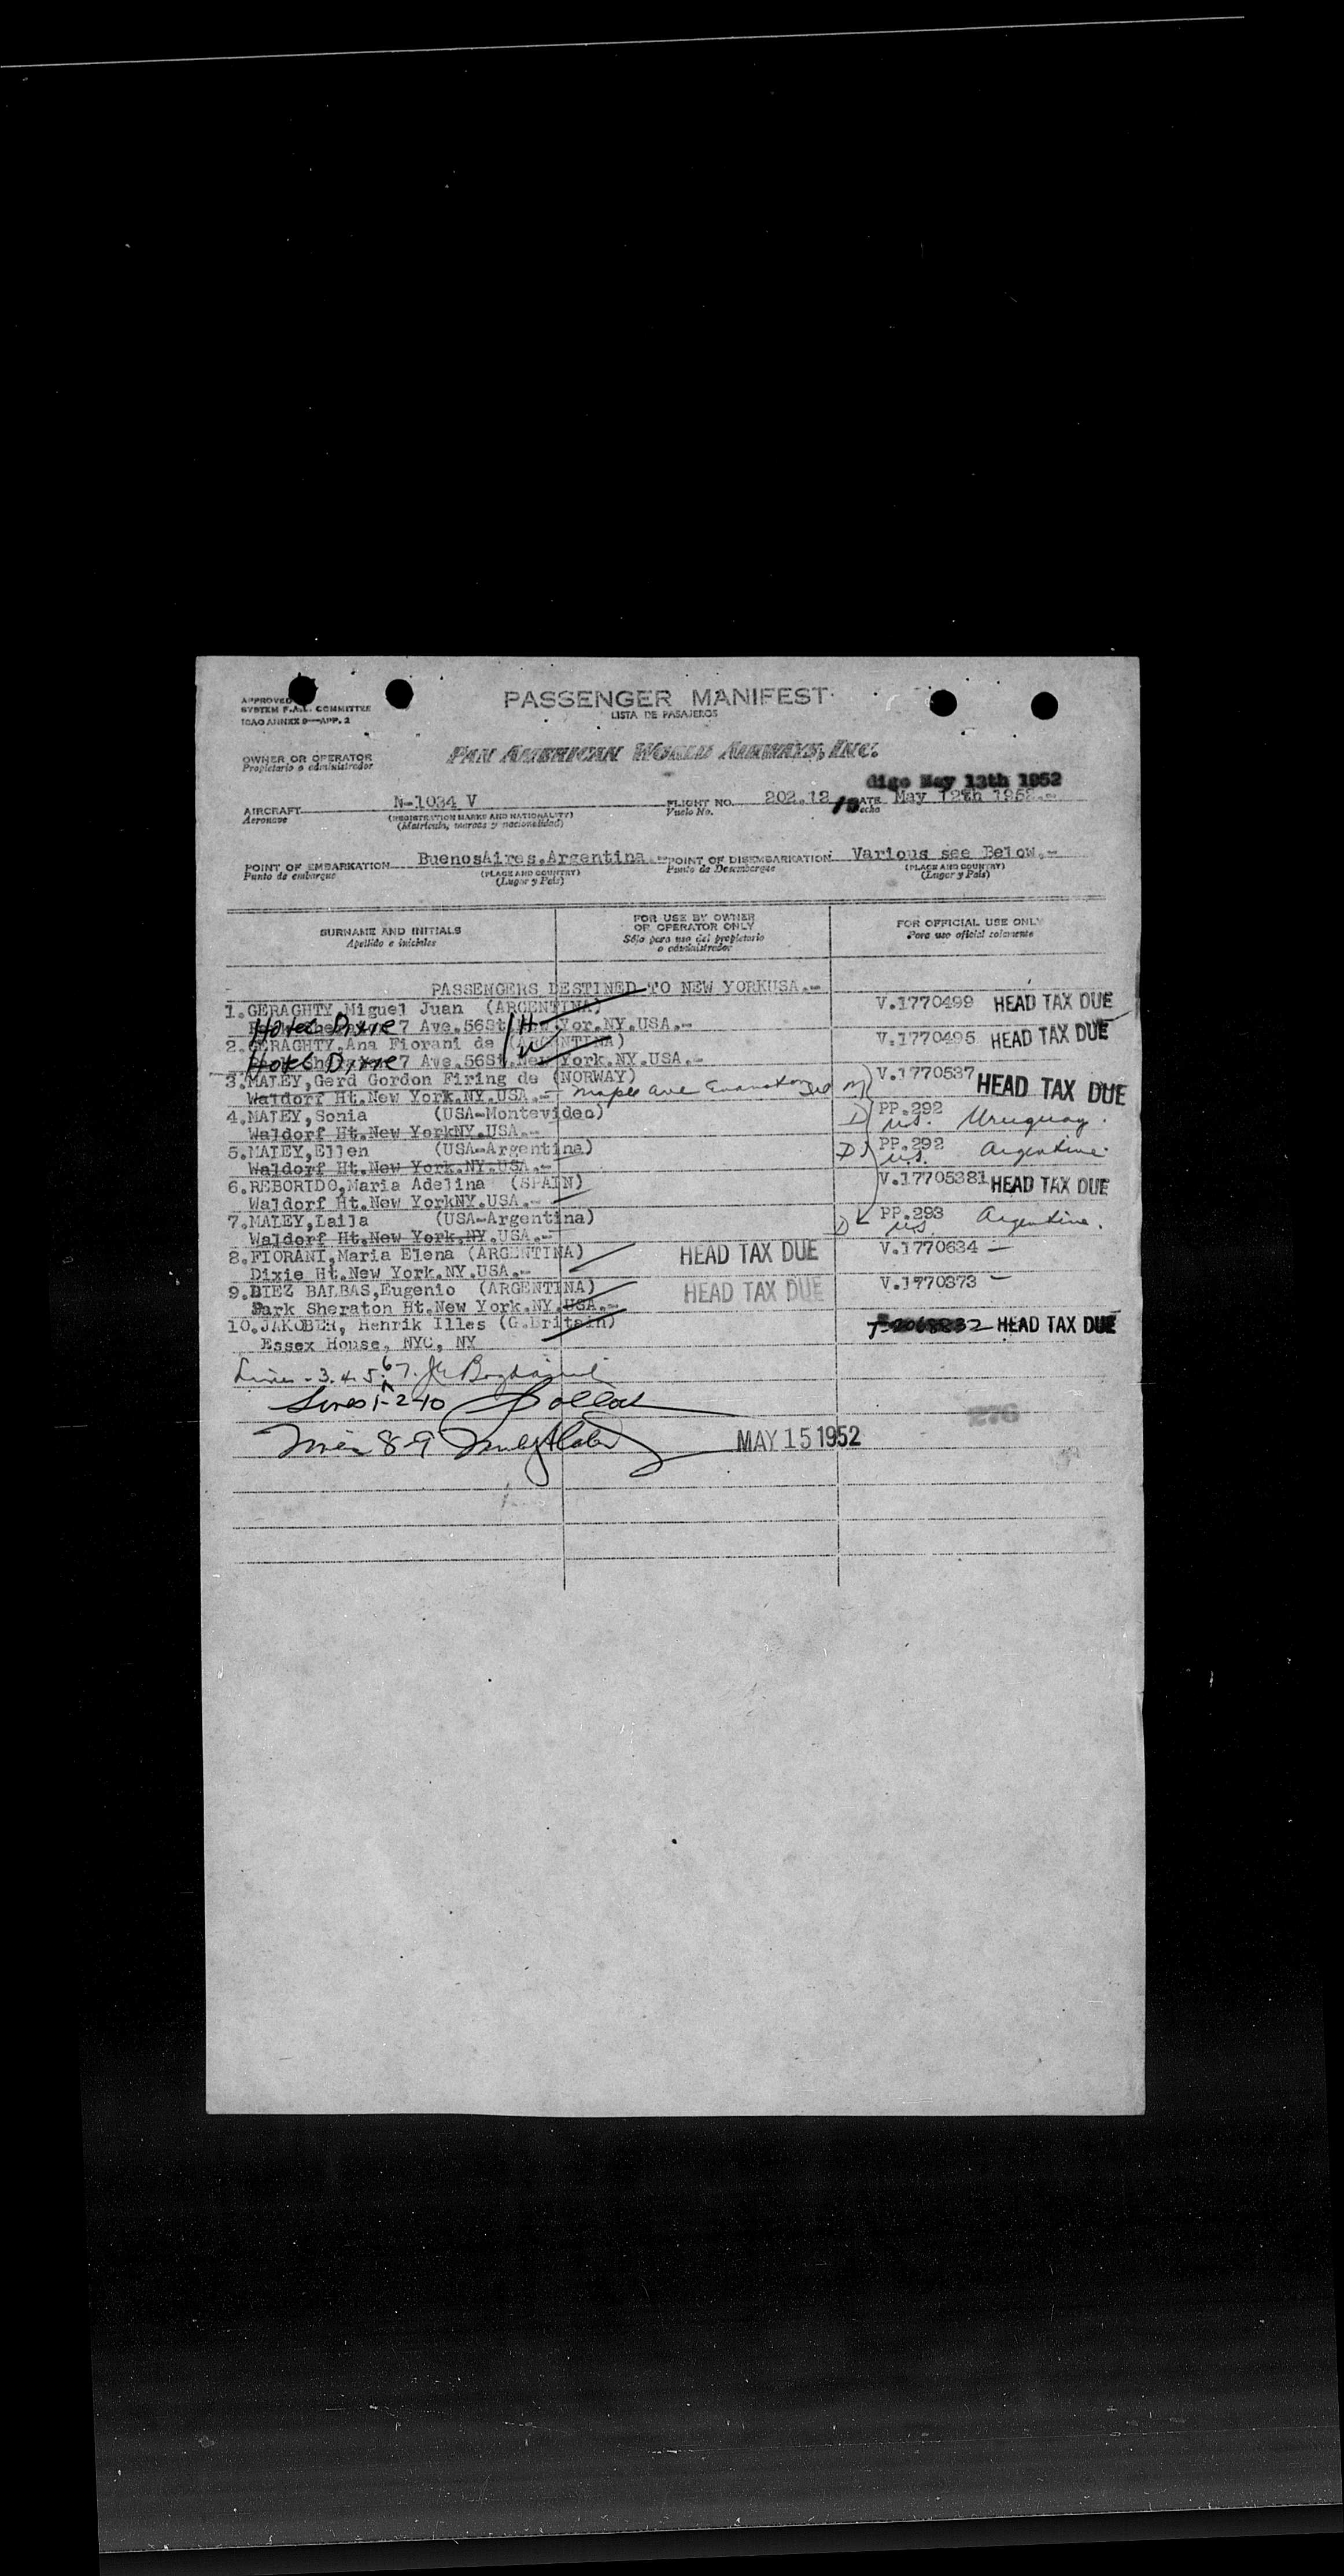 APPROVED
SYSTEM F.A.L. COMMITTEE
ICAO ANNEX 9—APP. 2
PASSENGER MANIFEST
LISTA DE PASAJEROS
OWNER OR OPERATOR
Propietario o administrador
PAN AMERICAN WORLD AIRWAYS, INC.
digo May 13th 1952
AIRCRAFT N-1034 V FLIGHT NO. 202.12 /13 DATE May 12th 1952.-
Aeronave (REGISTRATION MARKS AND NATIONALITY) Vuelo No. Fecha
(Matrícula, marcas y nacionalidad)
POINT OF EMBARKATION BuenosAires.Argentina.- POINT OF DISEMBARKATION Various see Below.-
Punto de embarque (PLACE AND COUNTRY) Punto de Desembarque (PLACE AND COUNTRY)
(Lugar y País) (Lugar y País)
SURNAME AND INITIALS FOR USE BY OWNER OR OPERATOR ONLY FOR OFFICIAL USE ONLY
Apellido e iniciales Sólo para uso del propietario o administrador Para uso oficial solamente
PASSENGERS DESTINED TO NEW YORKUSA.-
1.GERAGHTY,Miguel Juan (ARGENTINA) V.1770499 HEAD TAX DUE
Hotel Dixie 7 Ave.56St. H New Yor.NY.USA.-
2.GERAGHTY,Ana Fiorani de (ARGENTINA) W V.1770495 HEAD TAX DUE
Hotel Dixie 7 Ave.56St.New York.NY.USA.-
3.MATEY,Gerd Gordon Firing de (NORWAY) M V.1770537 HEAD TAX DUE
Waldorf Ht.New York.NY.USA.- Maple Ave Evanston
4.MATEY,Sonia (USA-Montevideo) D PP.292
Waldorf Ht.New YorkNY.USA.- U.S. Uruguay.
5.MATEY,Ellen (USA-Argentina) D PP.292
Waldorf Ht.New York.NY.USA.- U.S. Argentine
6.REBORIDO,Maria Adelina (SPAIN) V.17705381 HEAD TAX DUE
Waldorf Ht.New YorkNY.USA.-
7.MATEY,Laila (USA-Argentina) D PP.293
Waldorf Ht.New York.NY.USA.- US Argentine.
8.FIORANI,Maria Elena (ARGENTINA) HEAD TAX DUE V.1770634 -
Dixie Ht.New York.NY.USA.-
9.DIEZ BALBAS,Eugenio (ARGENTINA) HEAD TAX DUE V.1770373 -
Park Sheraton Ht.New York.NY.USA.-
10.JAKOBER, Henrik Illes (G.Britain) HEAD TAX DUE
Essex House, NYC, NY
Lines - 3.4.5.6 7.
Lines 1-2-10
Lines 8-9
MAY 15 1952
276